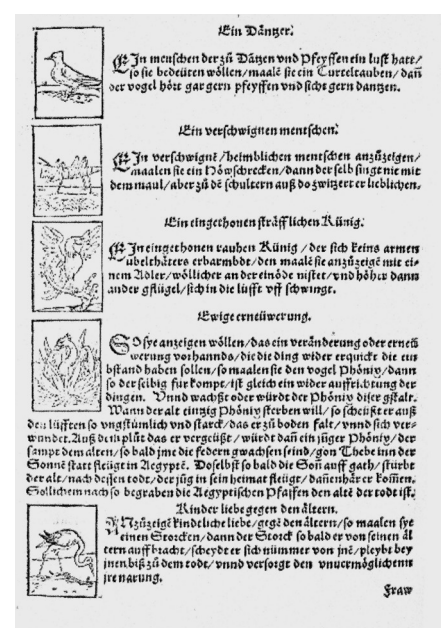 Ein Däntzer.
EIn menschen der zů Dätzen vnd Pfeyffen ein lust hatt/
so sie bedeüten wöllen/maalē sie ein Turteltauben/dañ
der vogel hört gar gern pfeyffen vnd sicht gern dantzen.
Ein verschwignen mentschen.
EIn verschwignē/heimblichen mentschen anzůzeigen/
maalen sie ein Höwschrecken/dann der selb singt nie mit
dem maul/aber zů dē schultern auß do zwitzert er lieblichen.
Ein eingethonen sträfflichen Künig.
EIn eingethonen rauhen Künig/der sich keins armen
übelthäters erbarmbdt/den maalē sie anzůzeigē mit ei-
nem Adler/wöllicher an der einöde nistet/vnd höher dann
ander gflügel/sich in die lüfft vff schwingt.
Ewige ernеüwerung.
SO sye anzeigen wöllen/das ein veränderung oder erneü
werung vorhannds/die die ding wider erquickt die ein
bstand haben sollen/so maalen sie den vogel Phöniy/dann
so der selbig fur kompt/ist gleich ein wider auffrichtung der
dingen. Vnnd wachßt oder würdt der Phöniy diser gstalt.
Wann der alt eintzig Phöniy sterben will/so scheüßt er auß
den lüfften so vngstümlich vnd starck/das er zů boden falt/vnnd sich ver-
wundet. Auß dem plůt das er vergeüßt/würdt dañ ein jüger Phöniy/der
sampt dem alten/so bald jme die federn gwachsen seind/gon Thebe inn der
Sonnē statt fleügt in Aegyptē. Doselbst so bald die Soñ auff gath/stürbt
der alt/nach dessen todt/der jüg in sein heimat fleügt/dañenhär er komen.
Söllichem nach so begraben die Aegyptischen Pfaffen den altē der todt ist.
Kinder liebe gegen den ältern.
ANzůzeigē kindtliche liebe/gegē den ältern/so maalen sye
einen Storcken/dann der Storck so bald er von seinen äl
tern auff bracht/scheydt er sich nümmer von jnē/pleybt bey
jnen biß zů dem todt/vnnd versorgt den vnuermöglichenn
jre narung.
Fraw